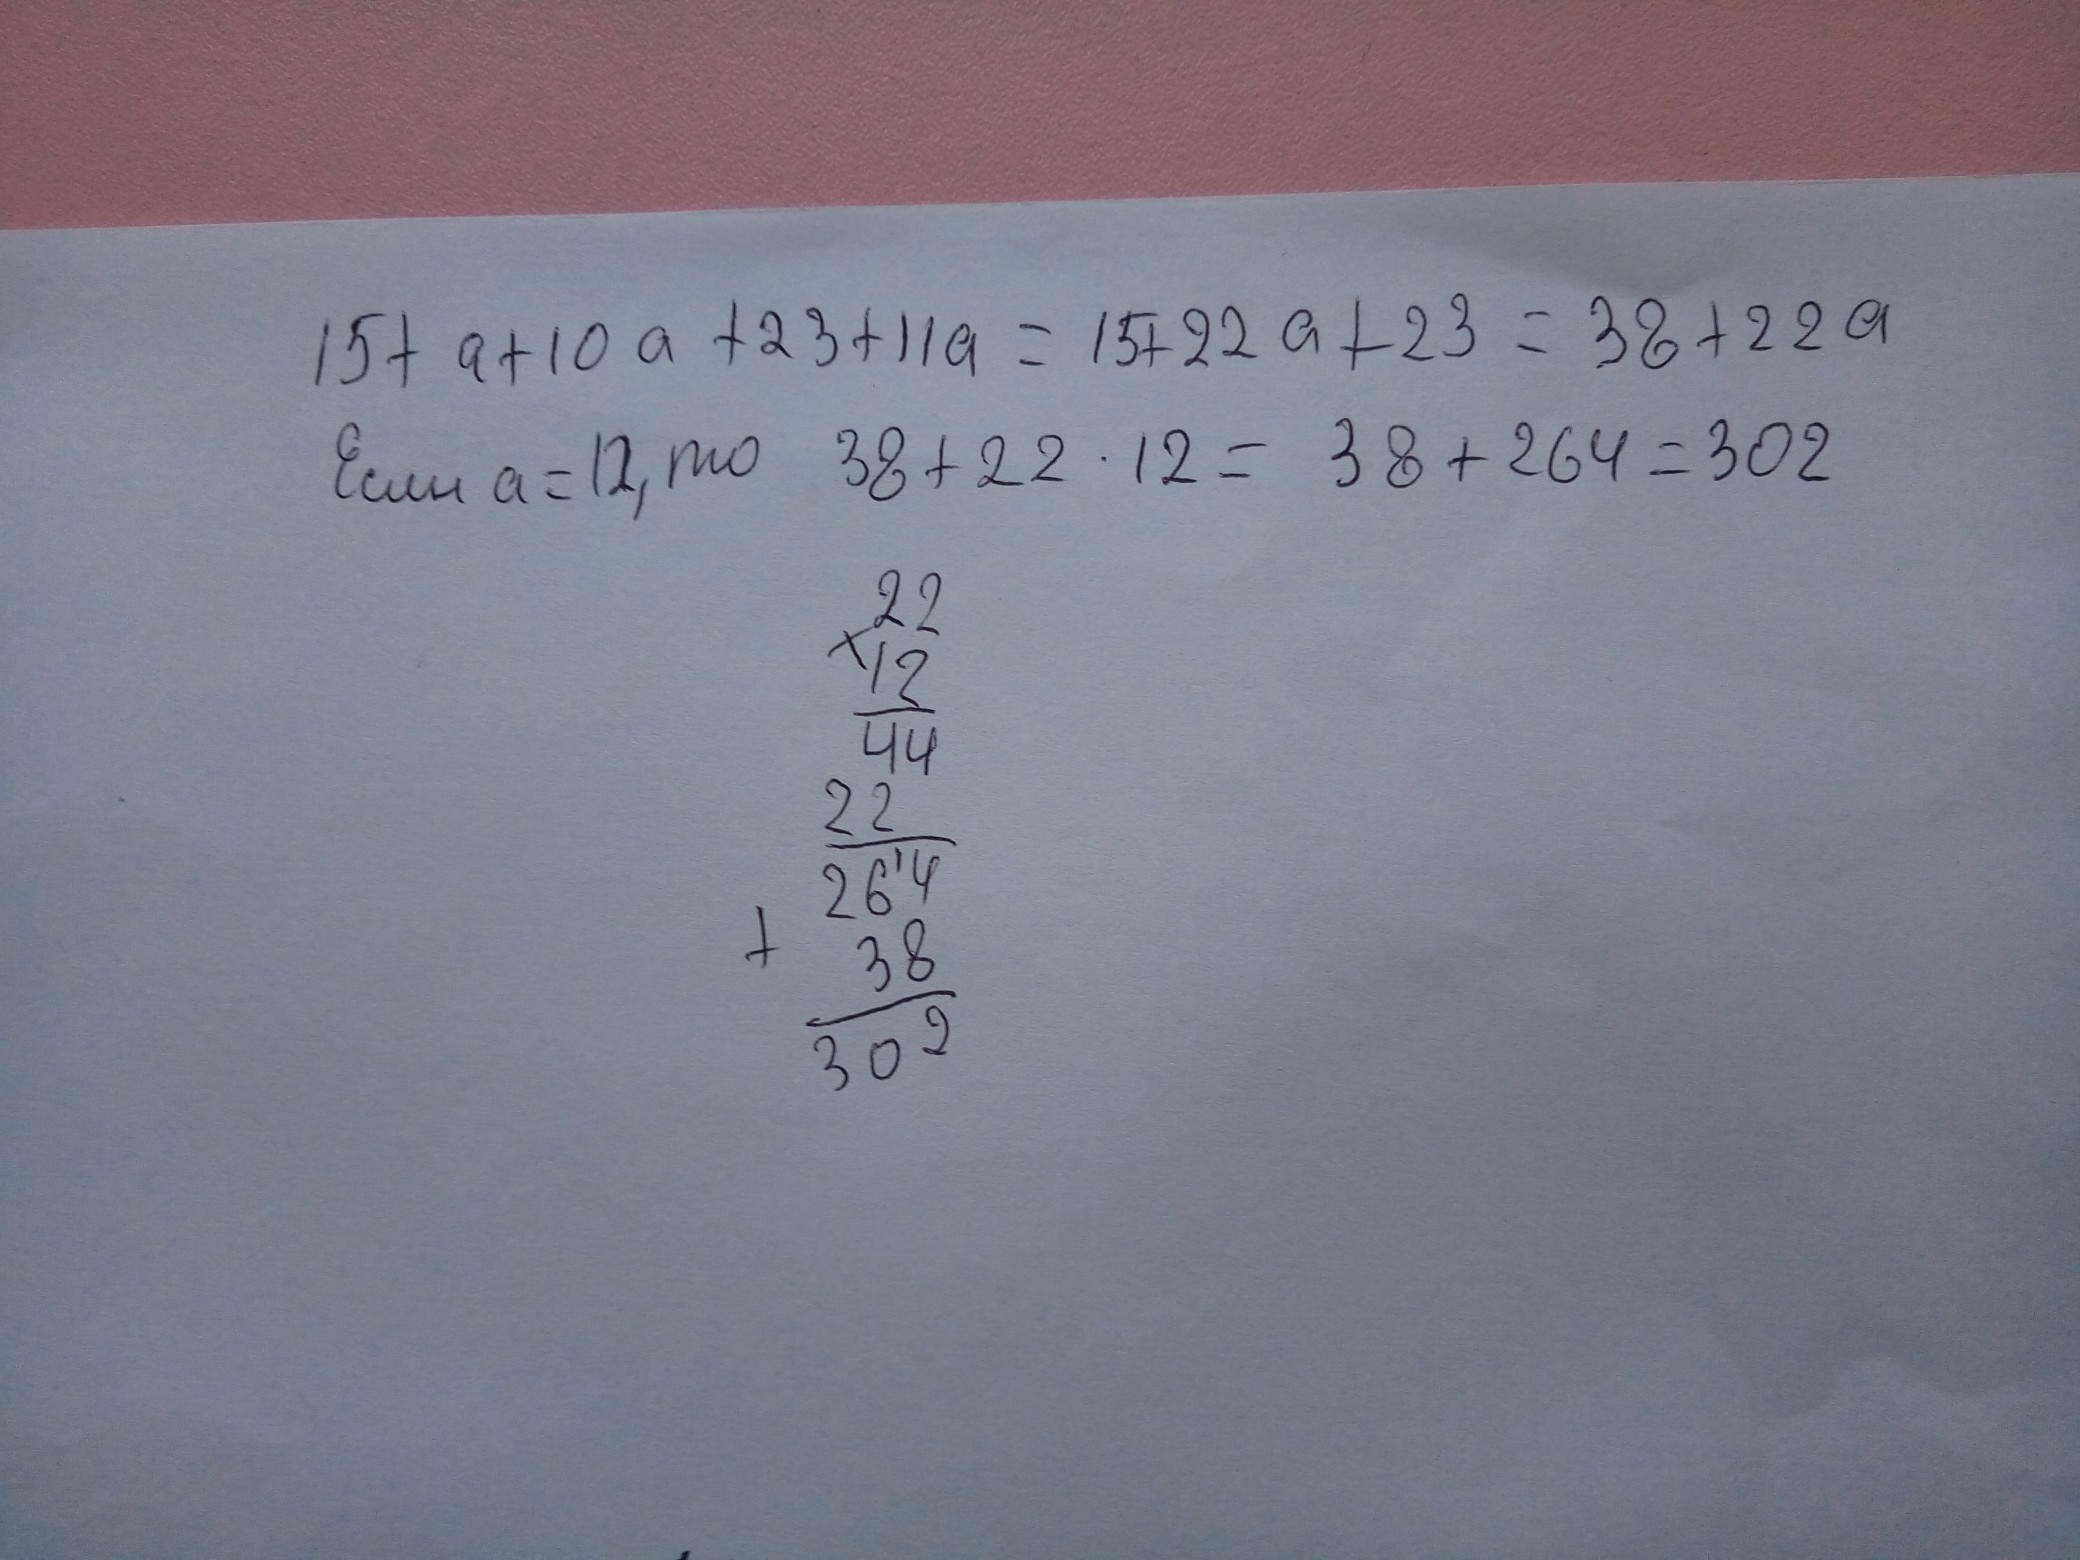 15+ a+10a+23+11a = 15+22a+23 = 38+22a
Если a=12, то 38+22·12= 38+264=302
22
×12
44
22
26'4
+ 38
302